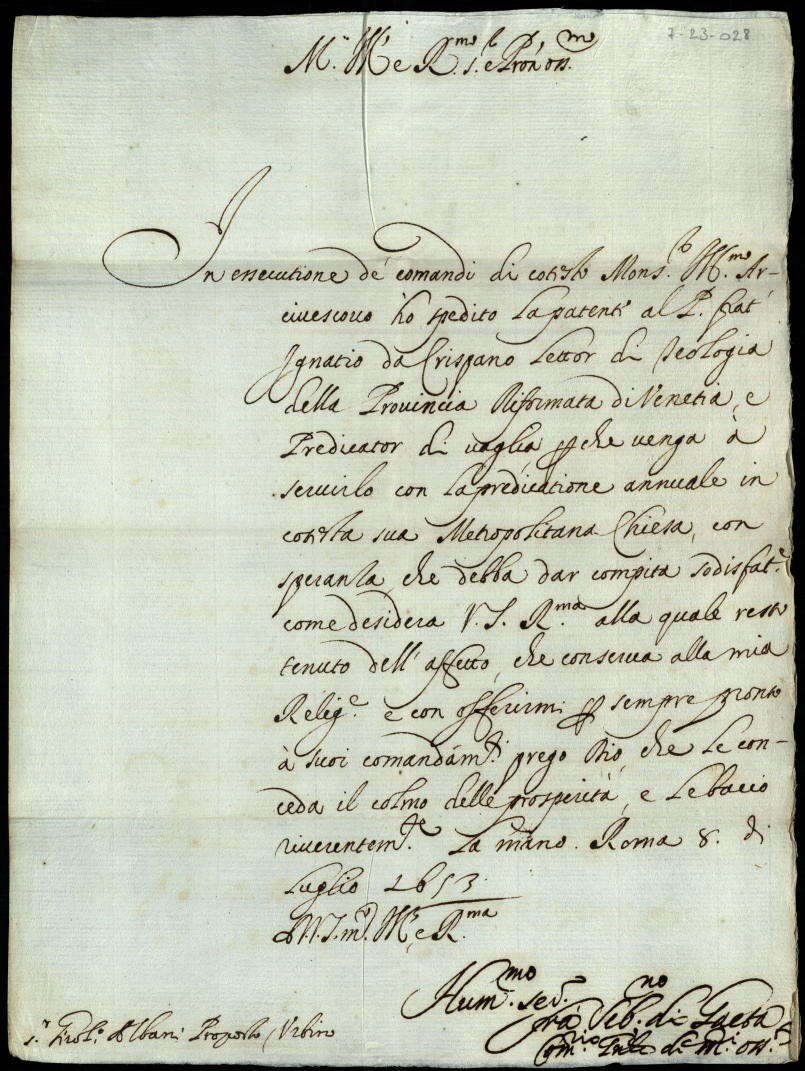 7-23-028
M.to Ill.e R.mo S.r e Prōn oss.mo
In essecutione de' comandi di cotesto Mons.r Ill.mo Ar-
ciuescouo hò spedito la patente al P. frat'
Ignatio da Crispano Lettor di Teologia
della Prouincia Riformata di Venetia, e
Predicator di vaglia, p che venga à
seruirlo con la predicatione annuale in
cotesta sua Metropolitana Chiesa, con
speranza, che debba dar compita sodisfat.e
come desidera V.S. R.ma alla quale resto
tenuto dell' affetto, che conserua alla mia
Relig.e e con offerirmi p sempre pronto
à suoi comandám.ti prego Dio, che le con-
ceda il colmo delle prosperità, e le bacio
riuerentem.te la mano. Roma 8. di
Luglio 1653.
D V.S. m.to Ill.e e R.ma
Hum.mo ser.
frà Seb.no di Gaeta
Com.rio Gn̄le de M.i Oss.ti
S.r Albani Proposto Vrbino